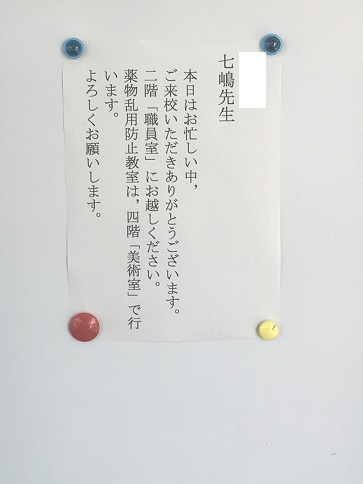 七嶋先生
本日はお忙しい中，
ご来校いただきありがとうございます。
二階「職員室」にお越しください。
薬物乱用防止教室は，四階「美術室」で行
います。
よろしくお願いします。